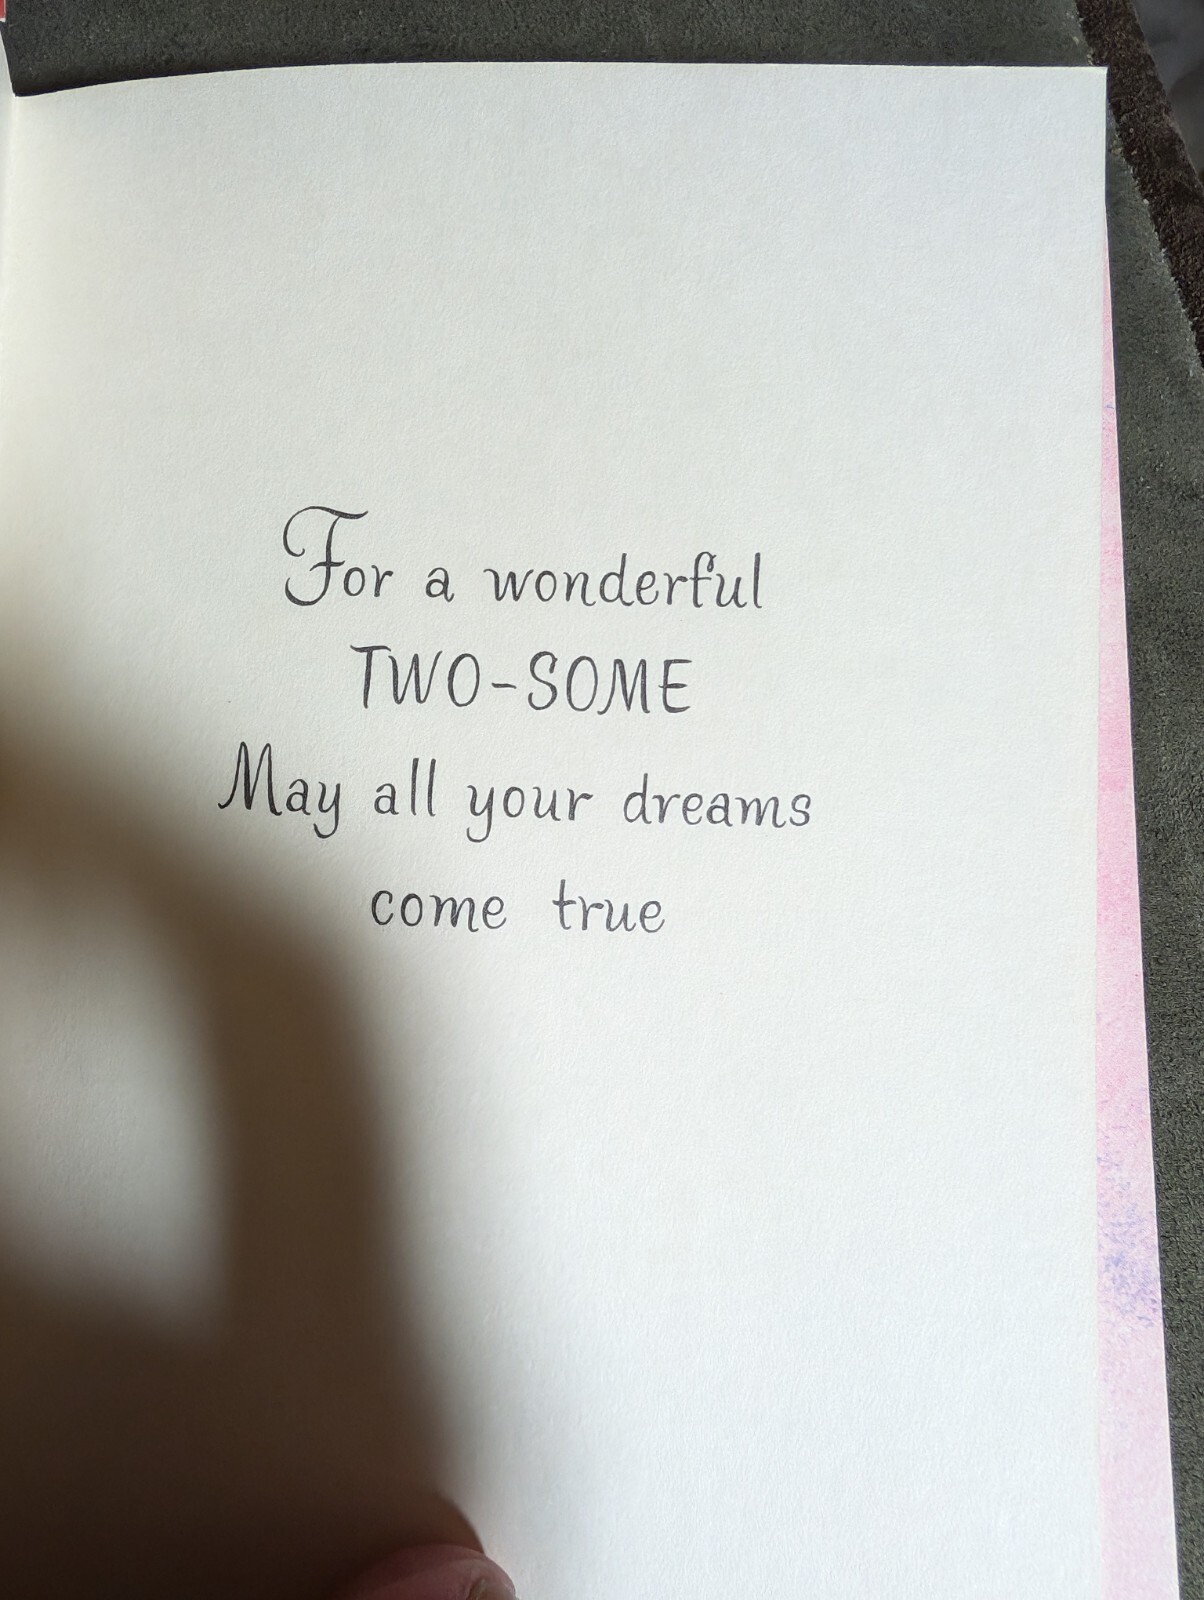 For a wonderful
TWO-SOME
May all your dreams
come true